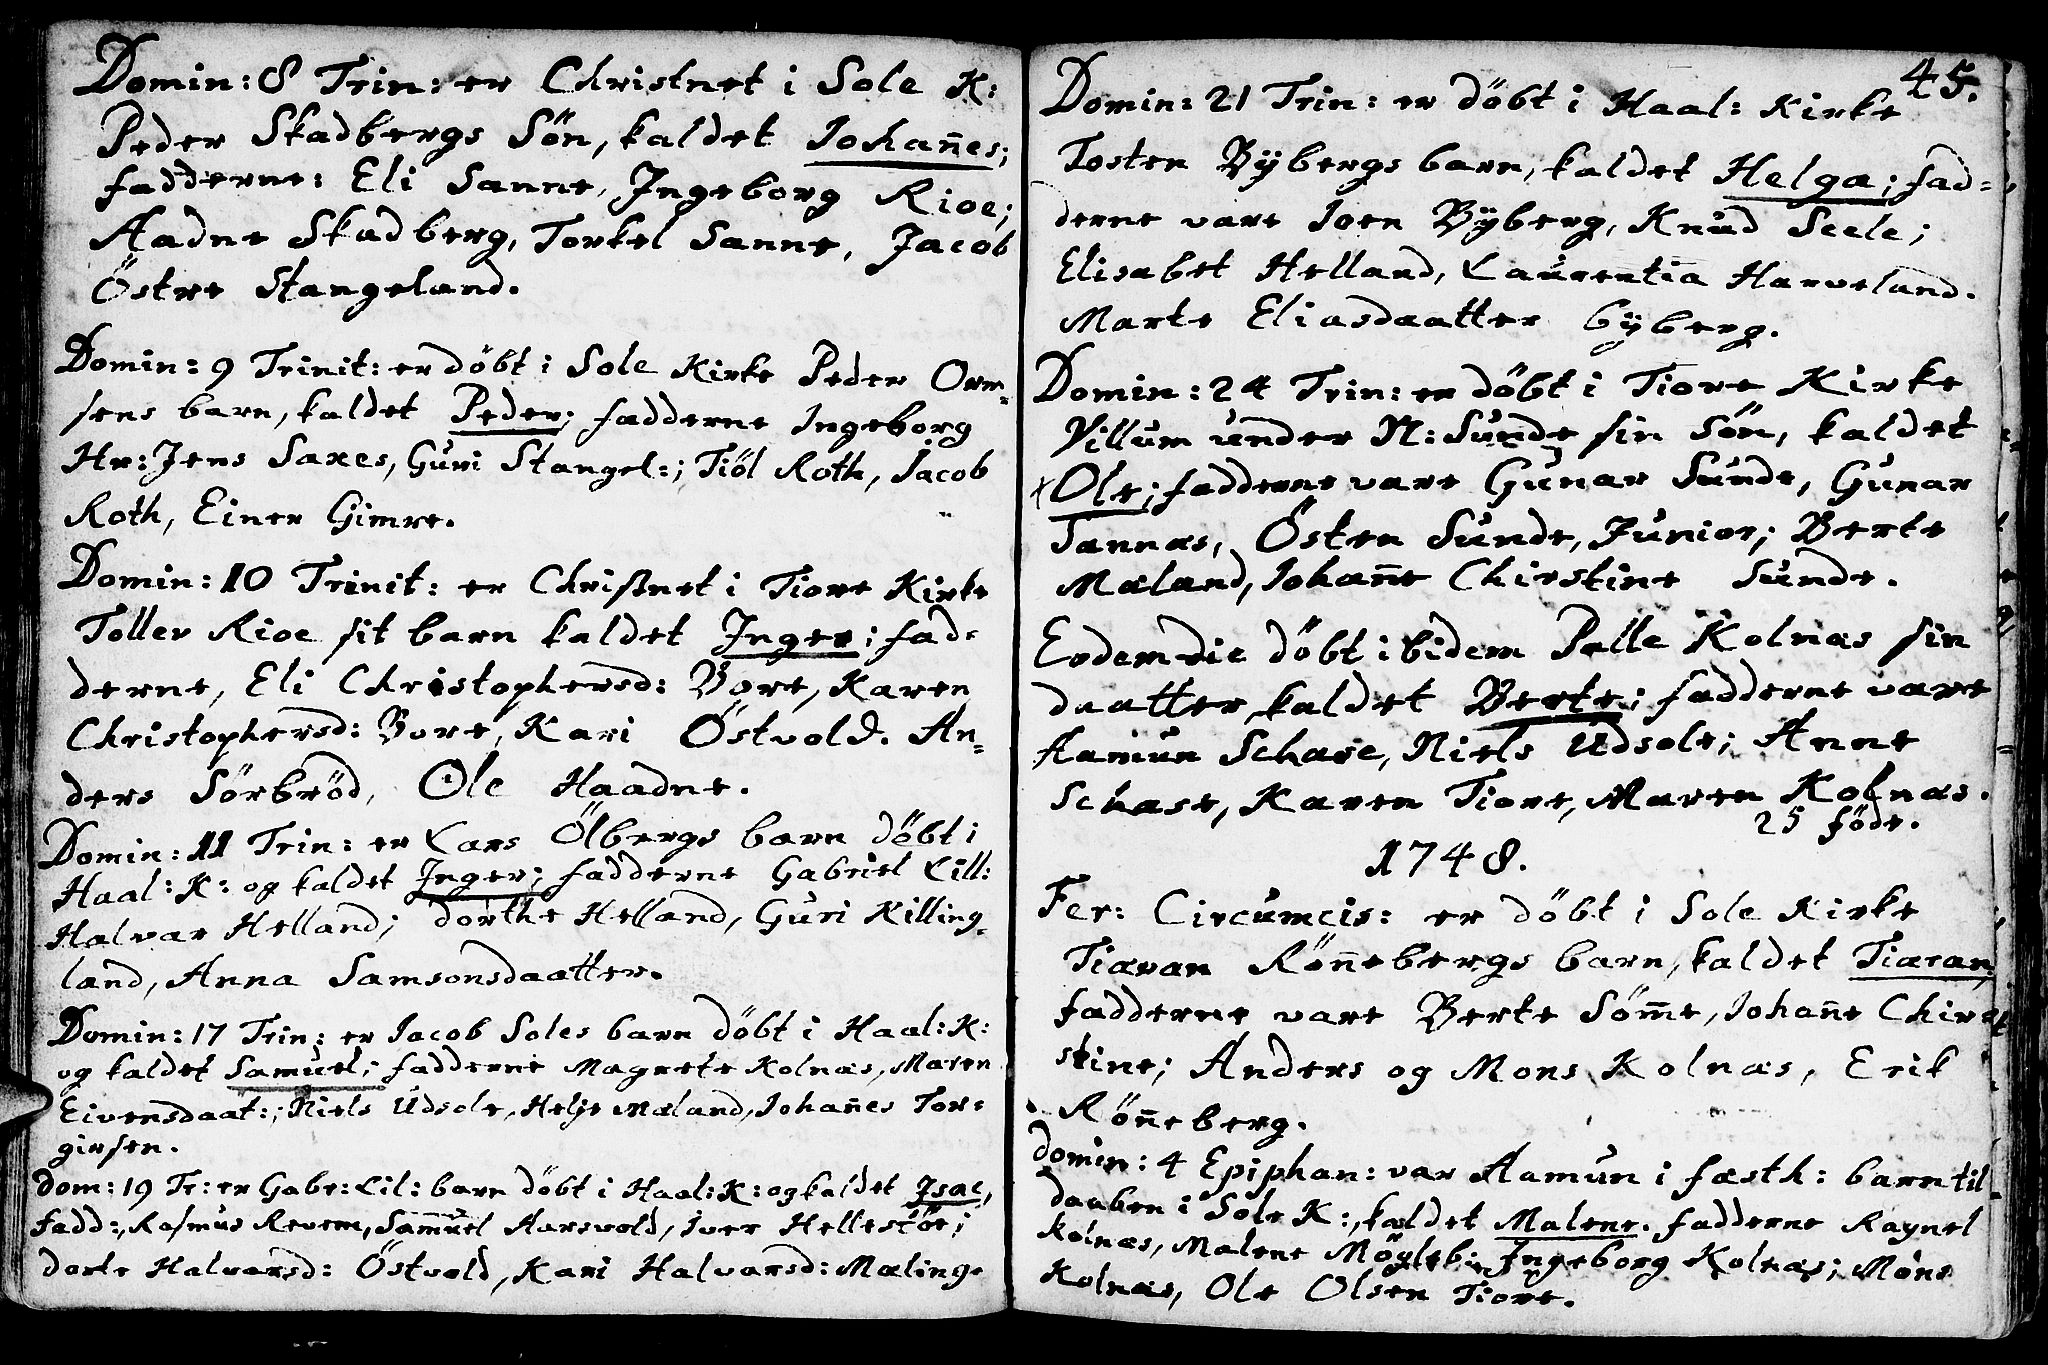 Domin: 8 Trin: er Christnet i Sole K:
Peder Skadbergs Sön, kaldet Iohan̄es;
fadderne: Eli Sanne, Jngeborg Rioe;
Aadne Skadberg, Torkel Sanne, Jacob
Östre Stangeland.
Domin: 9 Trinit: er döbt i Sole Kirke Peder Orm-
sens barn, kaldet Peder; fadderne Ingeborg
Hr: Jens Saxes, Guri Stangel:; Tiöl Roth, Jacob
Roth, Einer Gimre.
Domin: 10 Trinit: er Christnet i Tiore Kirke
Toller Rioe sit barn kaldet Inger; fad=
derne, Eli Christophersd: Bore, Karen
Christophersd: Bore, Kari Östvold. An=
ders Sörbröd, Ole Haadne.
Domin: 11 Trin: er Lars Ölbergs barn döbt i
Haal: K: og kaldet Jnger; fadderne Gabriel Lill:
Halvar Helland; dorthe Helland, Guri Killing-
land, Anna Samsonsdaatter.
Domin: 17 Trin: er Jacob Soles barn döbt i Haal: K:
og kaldet Samuel; fadderne Magrete Kolnæs, Maren
Eivensdaat:; Niels Udsole, Helje Mæland, Iohan̄es Tor=
girsen.
Dom: 19 Tr: er Gabr: Lil: barn döbt i Haal: K: og kaldet Jsac,
fadd:, Rasmus Revem, Samuel Aarsvold, Iver Hellestöe;
dorte Halvorsd: Östvold, Kari Halvarsd: Mæling.
45.
Domin: 21 Trin: er döbt i Haal: Kirke
Tosten Bÿbergs barn, kaldet Helga; fad=
derne vare Ioen Bÿberg, Knud Seele;
Elisabet Helland, Laurentia Harveland.
Marte Eliasdaatter bÿberg.
Domin: 24 Trin: er döbt i Tiore Kirke
Villum under N: Sunde sin Sön, kaldet
Ole; fadderne vare Gunar Sunde, Gunar
Sannæs, Östen Sunde, Junior; Berte
Mæland, Iohan̄e Chirstine Sunde.
Eodem die döbt ibidem Palle Kolnæs sin
daatter, kaldet Berte; fadderne vare
Aamun Schase, Niels Udsole; Anne
Schase, Karen Tiore, Maren Kolnæs.
25 föde.
1748.
Fer: Circumcis: er döbt i Sole Kirke
Tiæran Rön̄ebergs barn, kaldet Tiæran,
fadderne vare Berte Söm̄e, Iohan̄e Chir=
stine; Anders og Mons Kolnæs, Erik
Rön̄eberg.
Domin: 4 Epiphan: var Aamun i fæsth: barn til
daaben i Sole K:, kaldet Malene. fadderne Raynel
Kolnæs, Malene Möyleb: Jngeborg Kolnæs; Mons
Kolnæs, Ole Olsen Tiore.